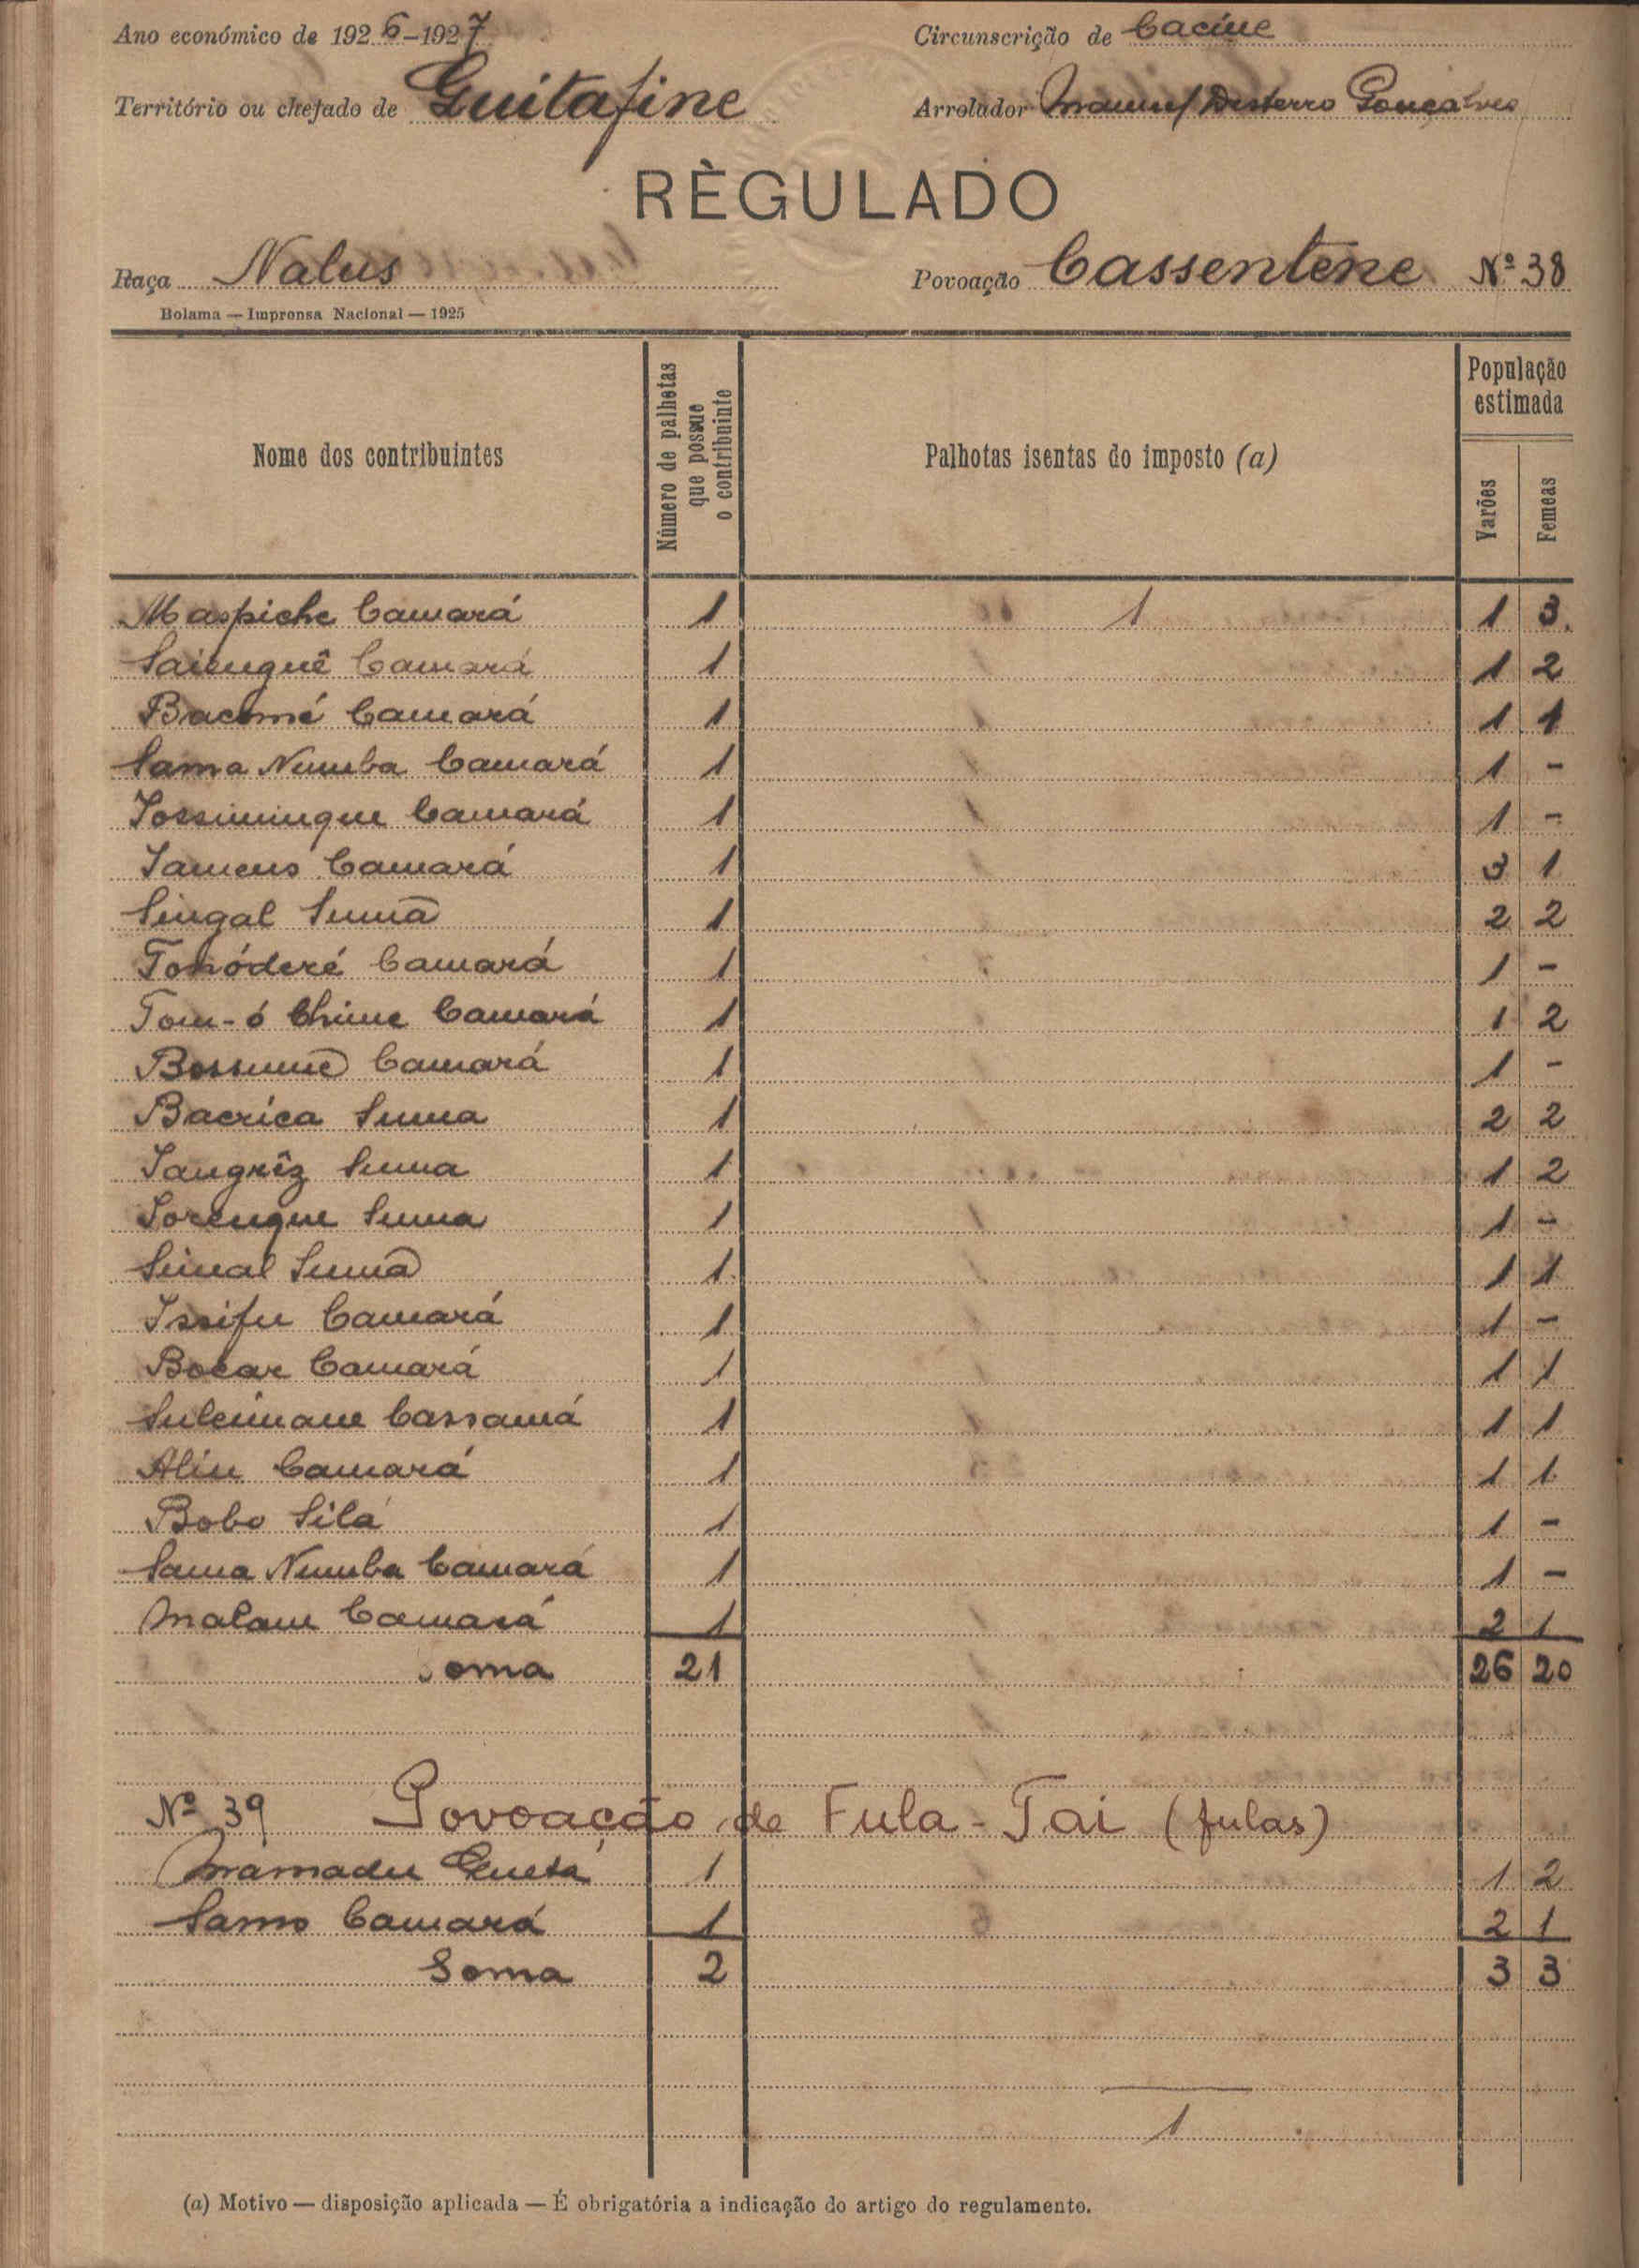 Ano económico de 1926-1927
Circunscrição de Cacine
Território ou chefado de Guitafine
Arrolador Manuel Desterro Gonçalves
RÈGULADO
Raça Nalus
Povoação Cassentene Nº 38
Bolama — Imprensa Nacional — 1925
Nome dos contribuintes
Número de palhetas que possue o contribuinte
Palhotas isentas do imposto (a)
População estimada
Varões
Femeas
Maspiche Camará 1 1 1 3
Saienguê Camará 1 1 2
Bacomé Camará 1 1 1
Sama Numba Camará 1 1 -
Camará 1 1 -
Camará 1 3 1
Singal Sumã 1 2 2
Camará 1 1 -
Tom-ó Chime Camará 1 1 2
Camará 1 1 -
Bacrica Suma 1 2 2
Suma 1 1 2
Sorengue Suma 1 1 -
Simal Sumã 1 1 1
Issifu Camará 1 1 -
Bocar Camará 1 1 1
Suleimane Cassamá 1 1 1
Aliu Camará 1 1 1
Bobo Silá 1 1 -
Sama Numba Camará 1 1 -
Malam Camará 1 2 1
Soma 21 26 20
Nº 39 Povoação de Fula-Tai (fulas)
Mamadu 1 1 2
Samo Camará 1 2 1
Soma 2 3 3
1
(a) Motivo — disposição aplicada — É obrigatória a indicação do artigo do regulamento.